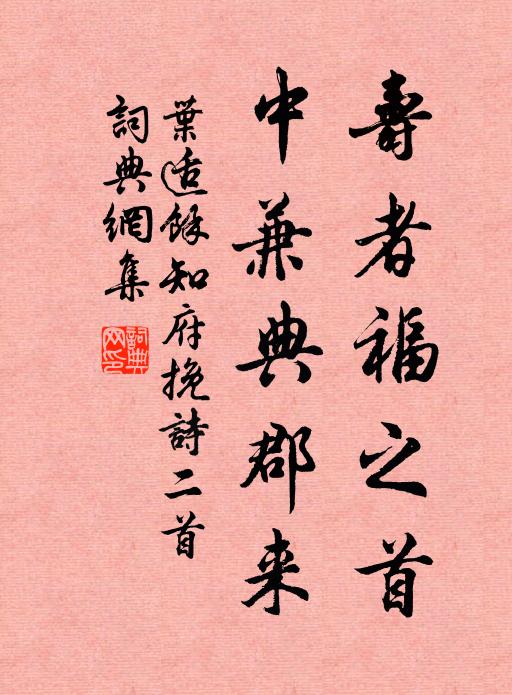 壽者福之首
中兼典郡来
葉适餘知府挽詩二首
詞典網集
詞典網印